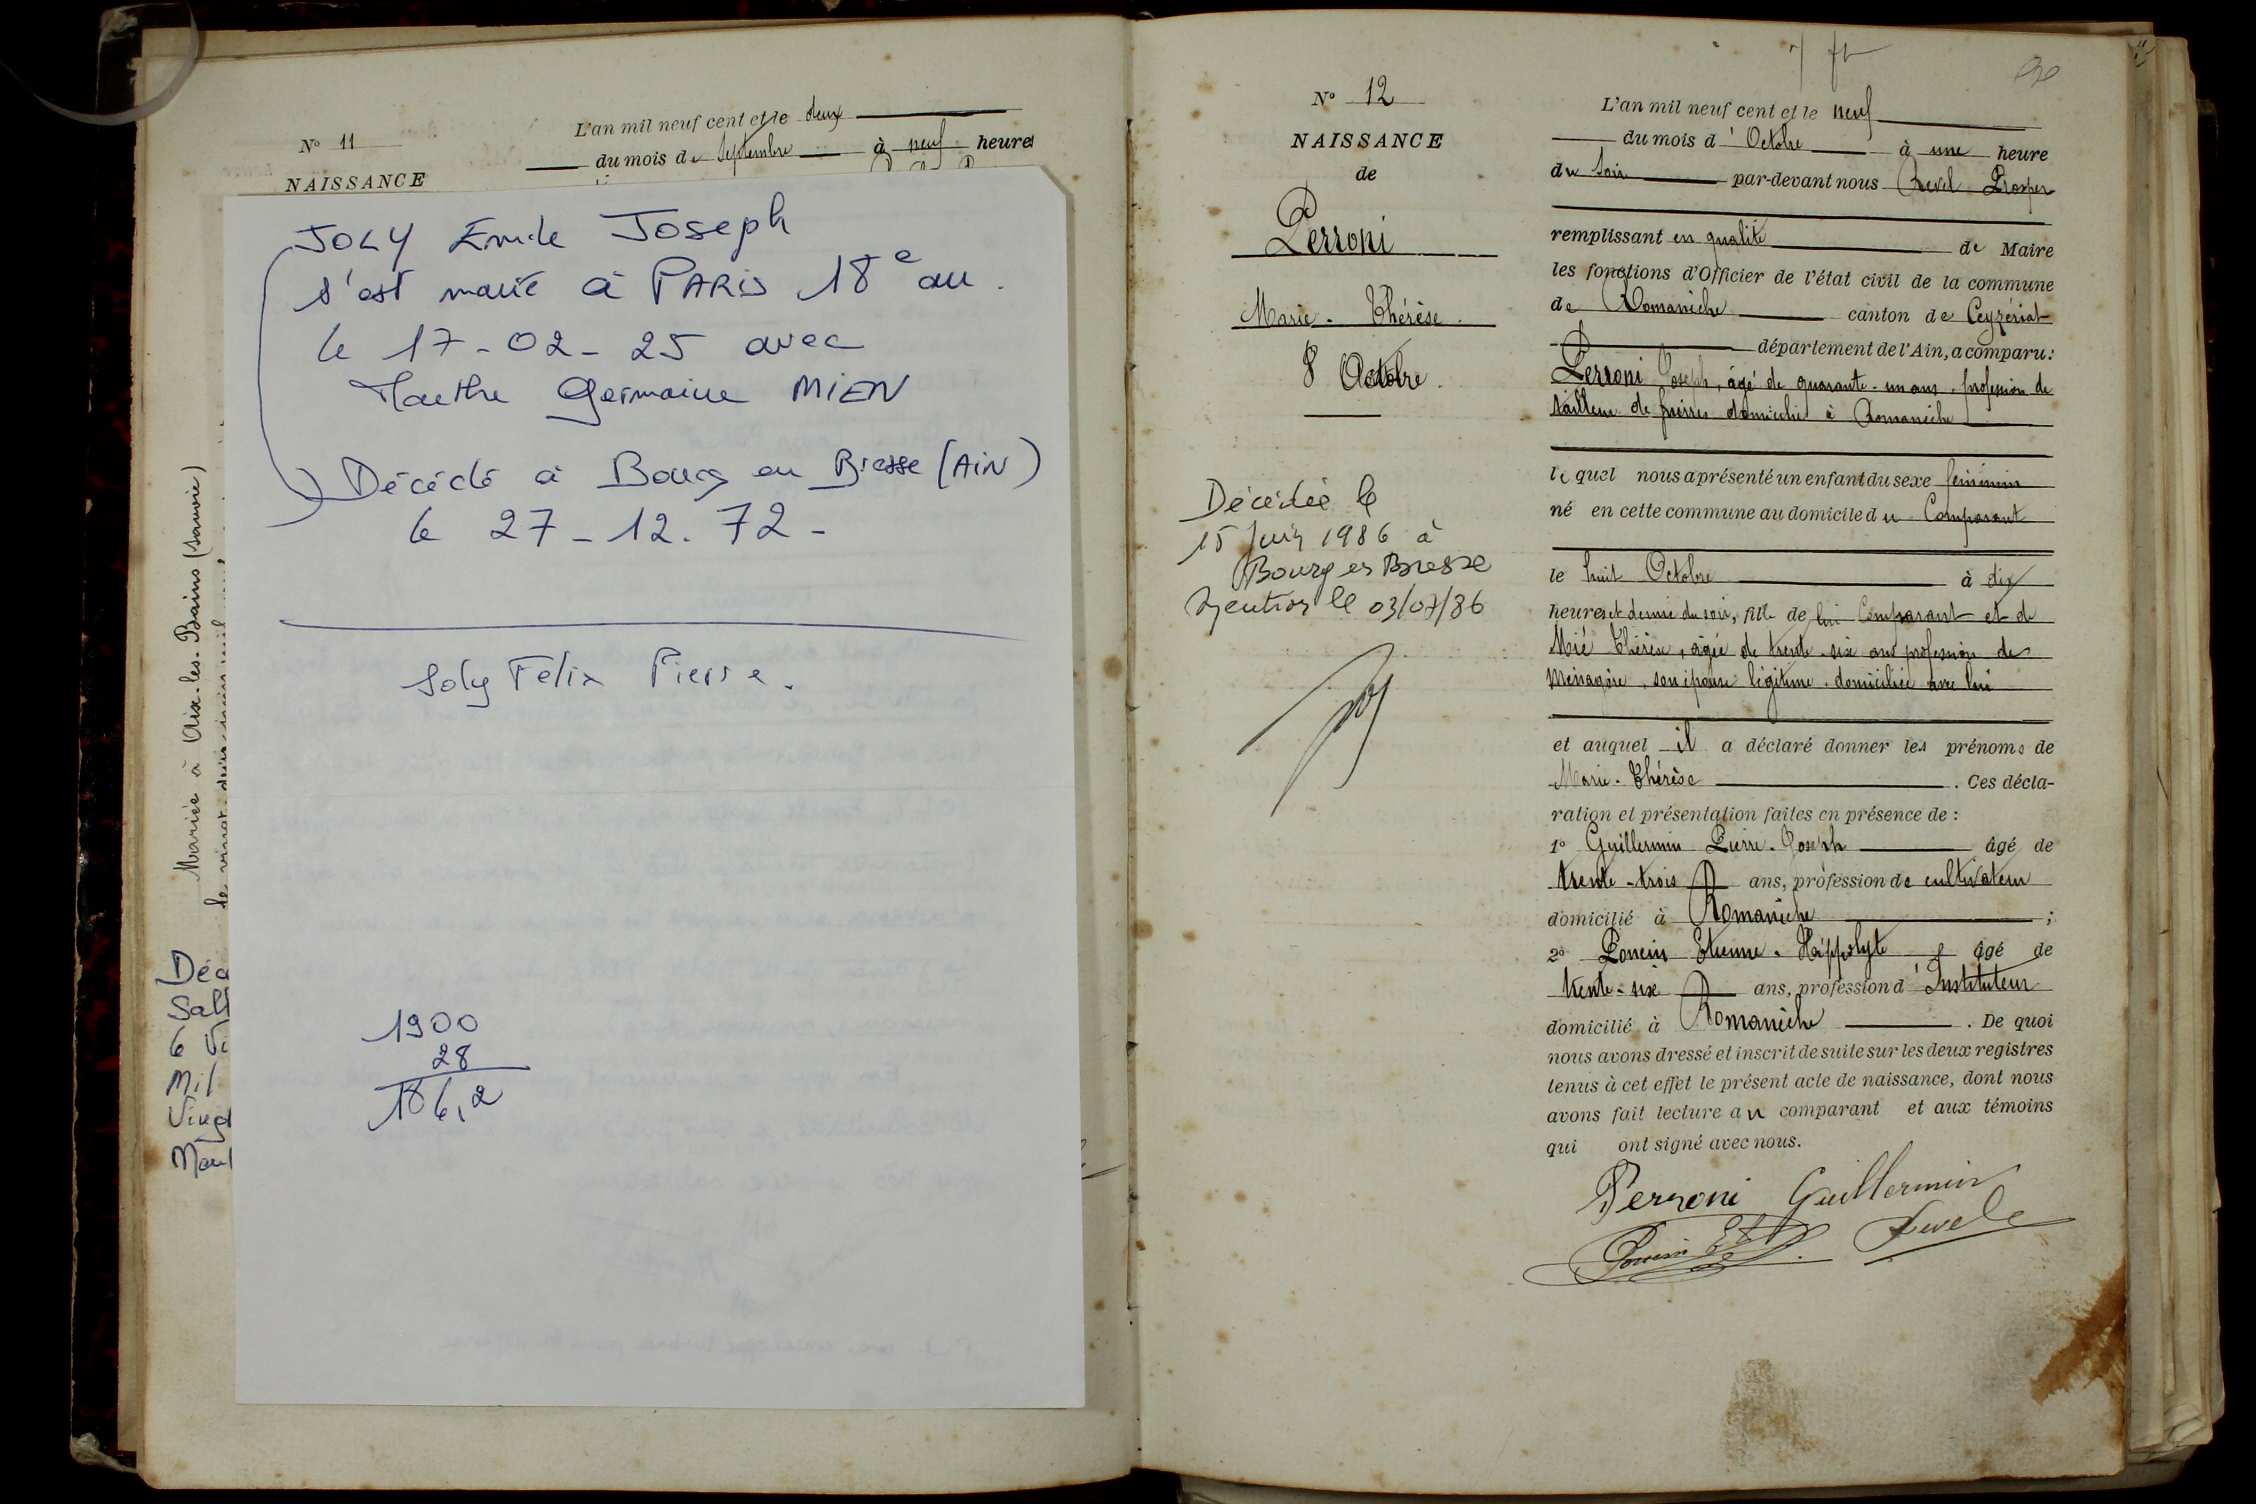 N° 11
NAISSANCE
L'an mil neuf cent et le deux
du mois de Septembre à neuf heures
Mariée à Aix-les-Bains (Savoie)
Déc
Sall
6
Mil
Vingt
JOLY Emile Joseph
s'est marié à PARIS 18e arr.
le 17-02-25 avec
Marthe Germaine MIEN
Décédé à Bourg en Bresse (AIN)
le 27-12.72-
Joly Félix Pierre.
1900
28
186,2
N° 12
NAISSANCE
de
Perroni
Marie-Thérèse.
8 Octobre.
Décédée le
15 Juin 1986 à
Bourg en Bresse
Mention le 03/07/86
L'an mil neuf cent et le neuf
du mois d'Octobre à une heure
du soir par-devant nous Revel Prosper
remplissant en qualité de Maire
les fonctions d'Officier de l'état civil de la commune
de Romanèche canton de Ceyzériat
département de l'Ain, a comparu:
Perroni Joseph, âgé de quarante-un ans, profession de
tailleur de pierres domicilié à Romanèche
lequel nous a présenté un enfant du sexe féminin
né en cette commune au domicile du Comparant
le huit Octobre à dix
heures et demie du soir, fille de lui Comparant et de
Mié Thérèse, âgée de trente-six ans profession de
Ménagère, son épouse légitime, domiciliée avec lui
et auquel il a déclaré donner les prénoms de
Marie-Thérèse. Ces décla-
ration et présentation faites en présence de:
1° Guillermin Pierre-Joseph âgé de
trente-trois ans, profession de cultivateur
domicilié à Romanèche;
2° Poncin Etienne-Hippolyte âgé de
trente-six ans, profession d'Instituteur
domicilié à Romanèche. De quoi
nous avons dressé et inscrit de suite sur les deux registres
tenus à cet effet le présent acte de naissance, dont nous
avons fait lecture au comparant et aux témoins
qui ont signé avec nous.
Perroni Guillermin
Poncin Et Revel